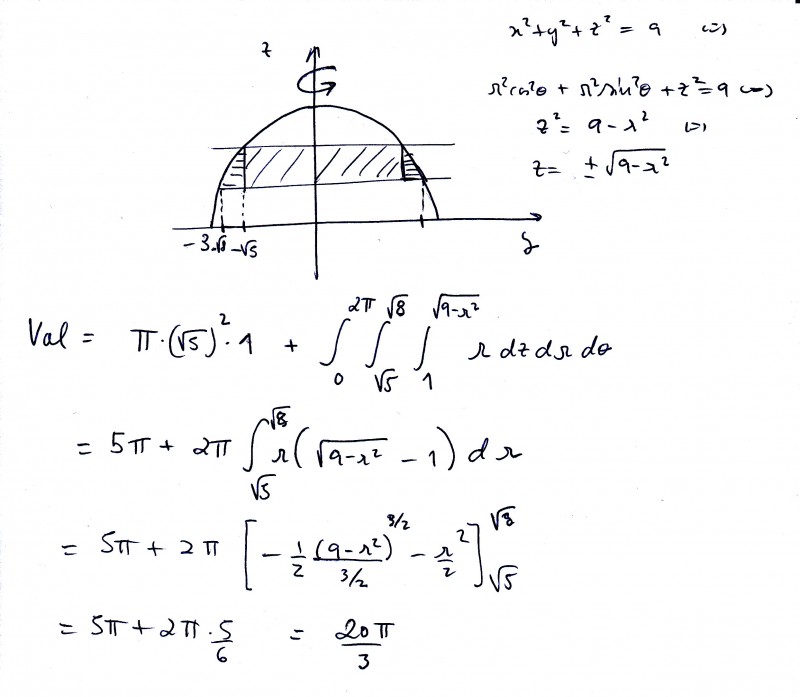 x²+y²+z² = 9 (=)
r²cos²θ + r²sin²θ + z² = 9 (=)
z² = 9 - r² (=)
z = ±√(9-r²)
z
-3 -√8 -√5
y
Vol = π·(√5)²·1 + ∫₀^{2π} ∫_{√5}^{√8} ∫₁^{√(9-r²)} r dz dr dθ
= 5π + 2π ∫_{√5}^{√8} r(√(9-r²) - 1) dr
= 5π + 2π [-1/2 (9-r²)^{3/2}/(3/2) - r²/2]_{√5}^{√8}
= 5π + 2π · 5/6 = 20π/3